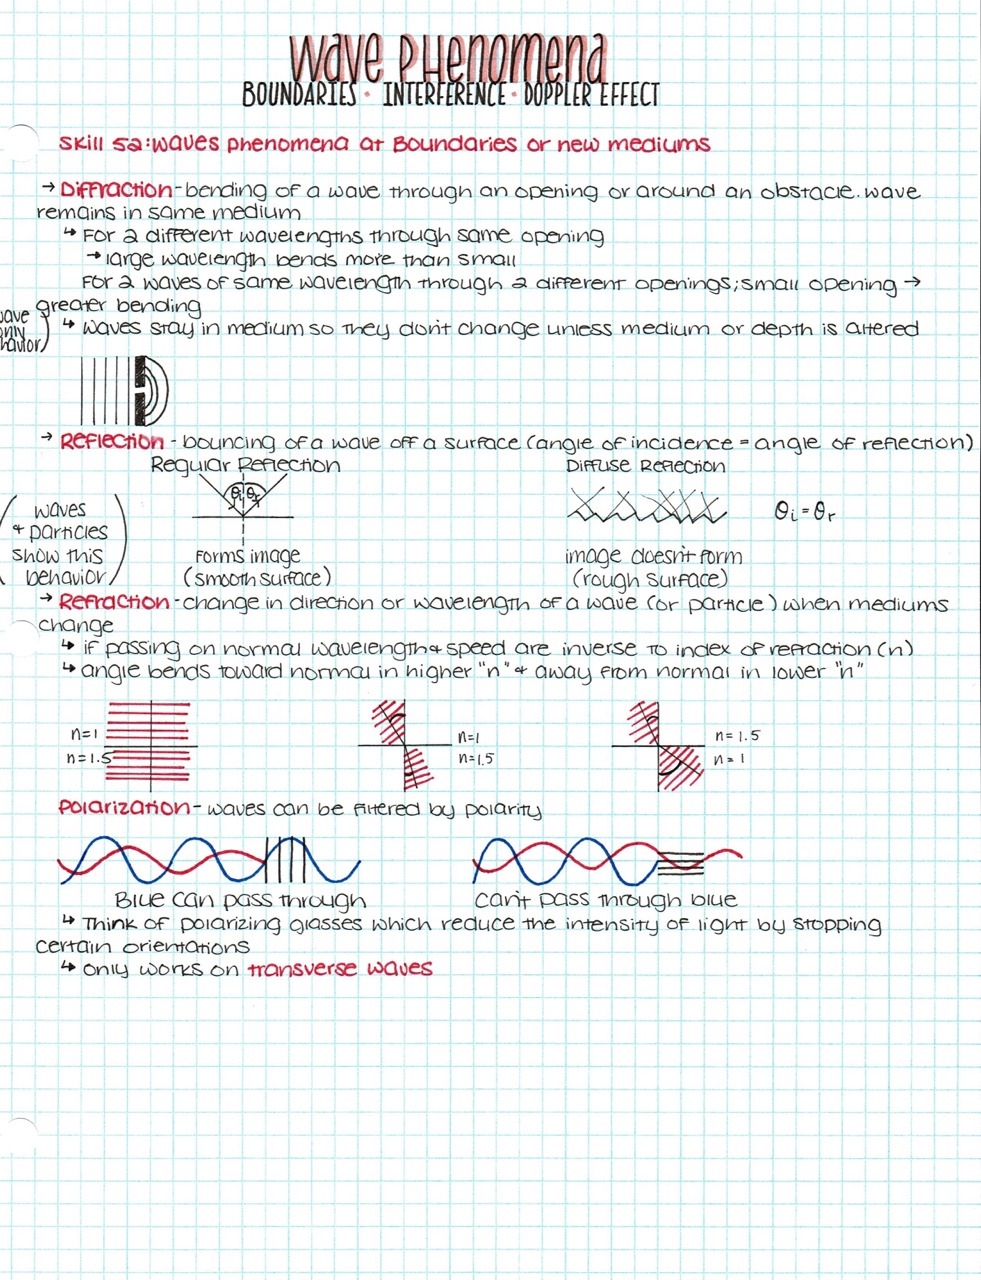 Wave Phenomena
BOUNDARIES · INTERFERENCE · DOPPLER EFFECT
Skill 5a: Waves phenomena at Boundaries or new mediums
→ Diffraction - bending of a wave through an opening or around an obstacle. wave
remains in same medium
↳ For 2 different wavelengths through same opening
→ large wavelength bends more than small
For 2 waves of same wavelength through 2 different openings; small opening →
greater bending
↳ Waves stay in medium so they don't change unless medium or depth is altered
→ Reflection - bouncing of a wave off a surface (angle of incidence = angle of reflection)
Regular Reflection
Diffuse Reflection
θi θr
(waves
+ particles
show this
behavior)
θi = θr
Forms image
(smooth surface)
image doesn't form
(rough surface)
→ Refraction - change in direction or wavelength of a wave (or particle) when mediums
change
↳ if passing on normal wavelength + speed are inverse to index of refraction (n)
↳ angle bends toward normal in higher "n" + away from normal in lower "n"
n=1
n=1.5
n=1
n=1.5
n=1.5
n=1
Polarization - waves can be filtered by polarity
Blue can pass through
Can't pass through blue
↳ Think of polarizing glasses which reduce the intensity of light by stopping
certain orientations
↳ only works on transverse waves